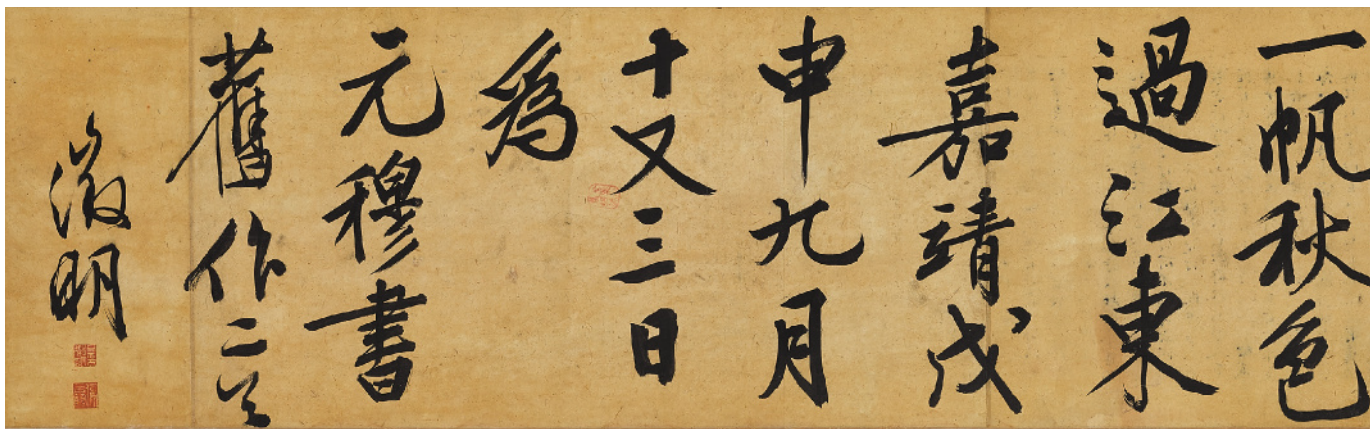 一帆秋色
過江東
嘉靖戊
申九月
十又三日
爲
元穆書
舊作二首
徵明